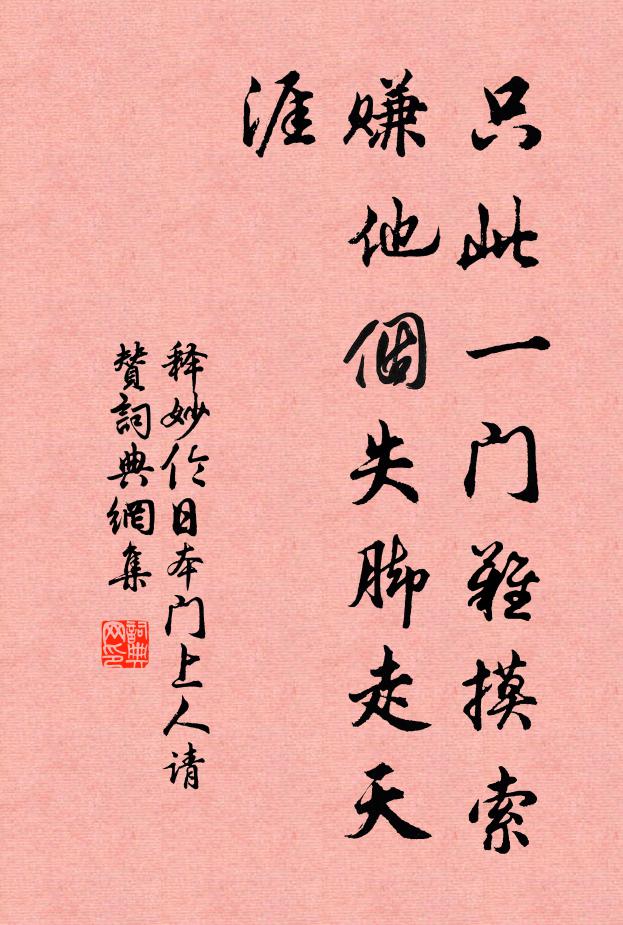 只此一门难摸索
赚他個失脚走天
涯
释妙伦日本门上人请
赞詞典網集
詞典
网印